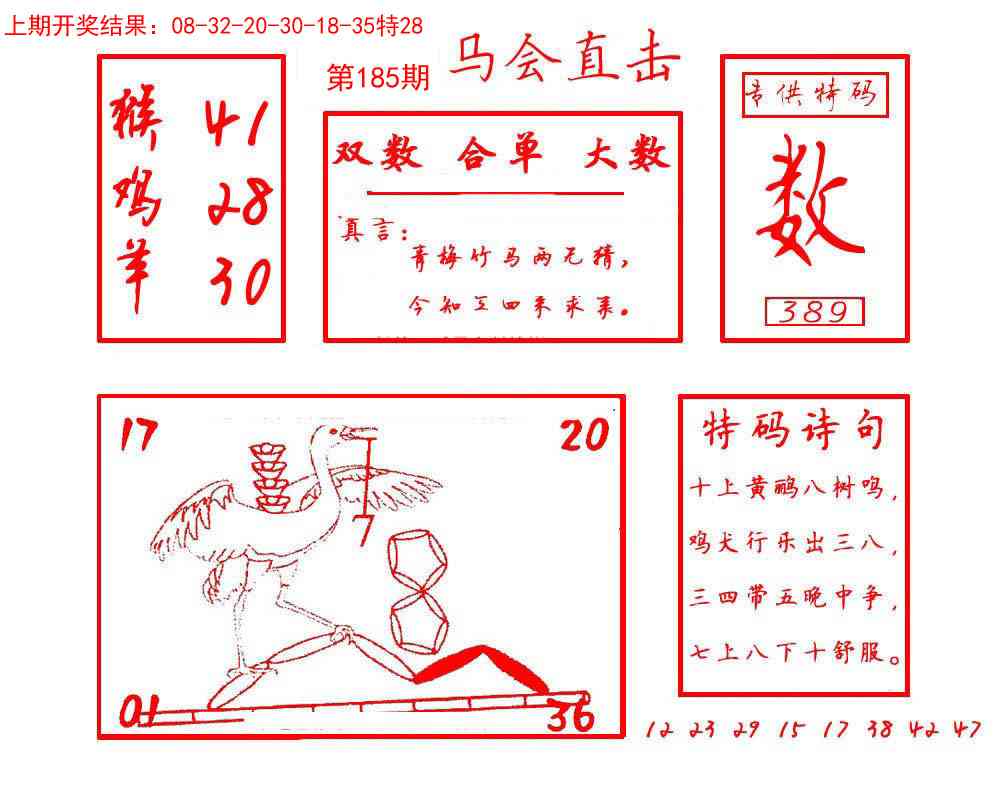 上期开奖结果：08-32-20-30-18-35特28
第185期
马会直击
猴 41
鸡 28
羊 30
双数 合单 大数
真言：
青梅竹马两无猜，
今知三四来求美。
专供特码
数
389
17
20
7
01
36
特码诗句
十上黄鹂八树鸣，
鸡犬行乐出三八，
三四带五晚中争，
七上八下十舒服。
12 23 29 15 17 38 42 47